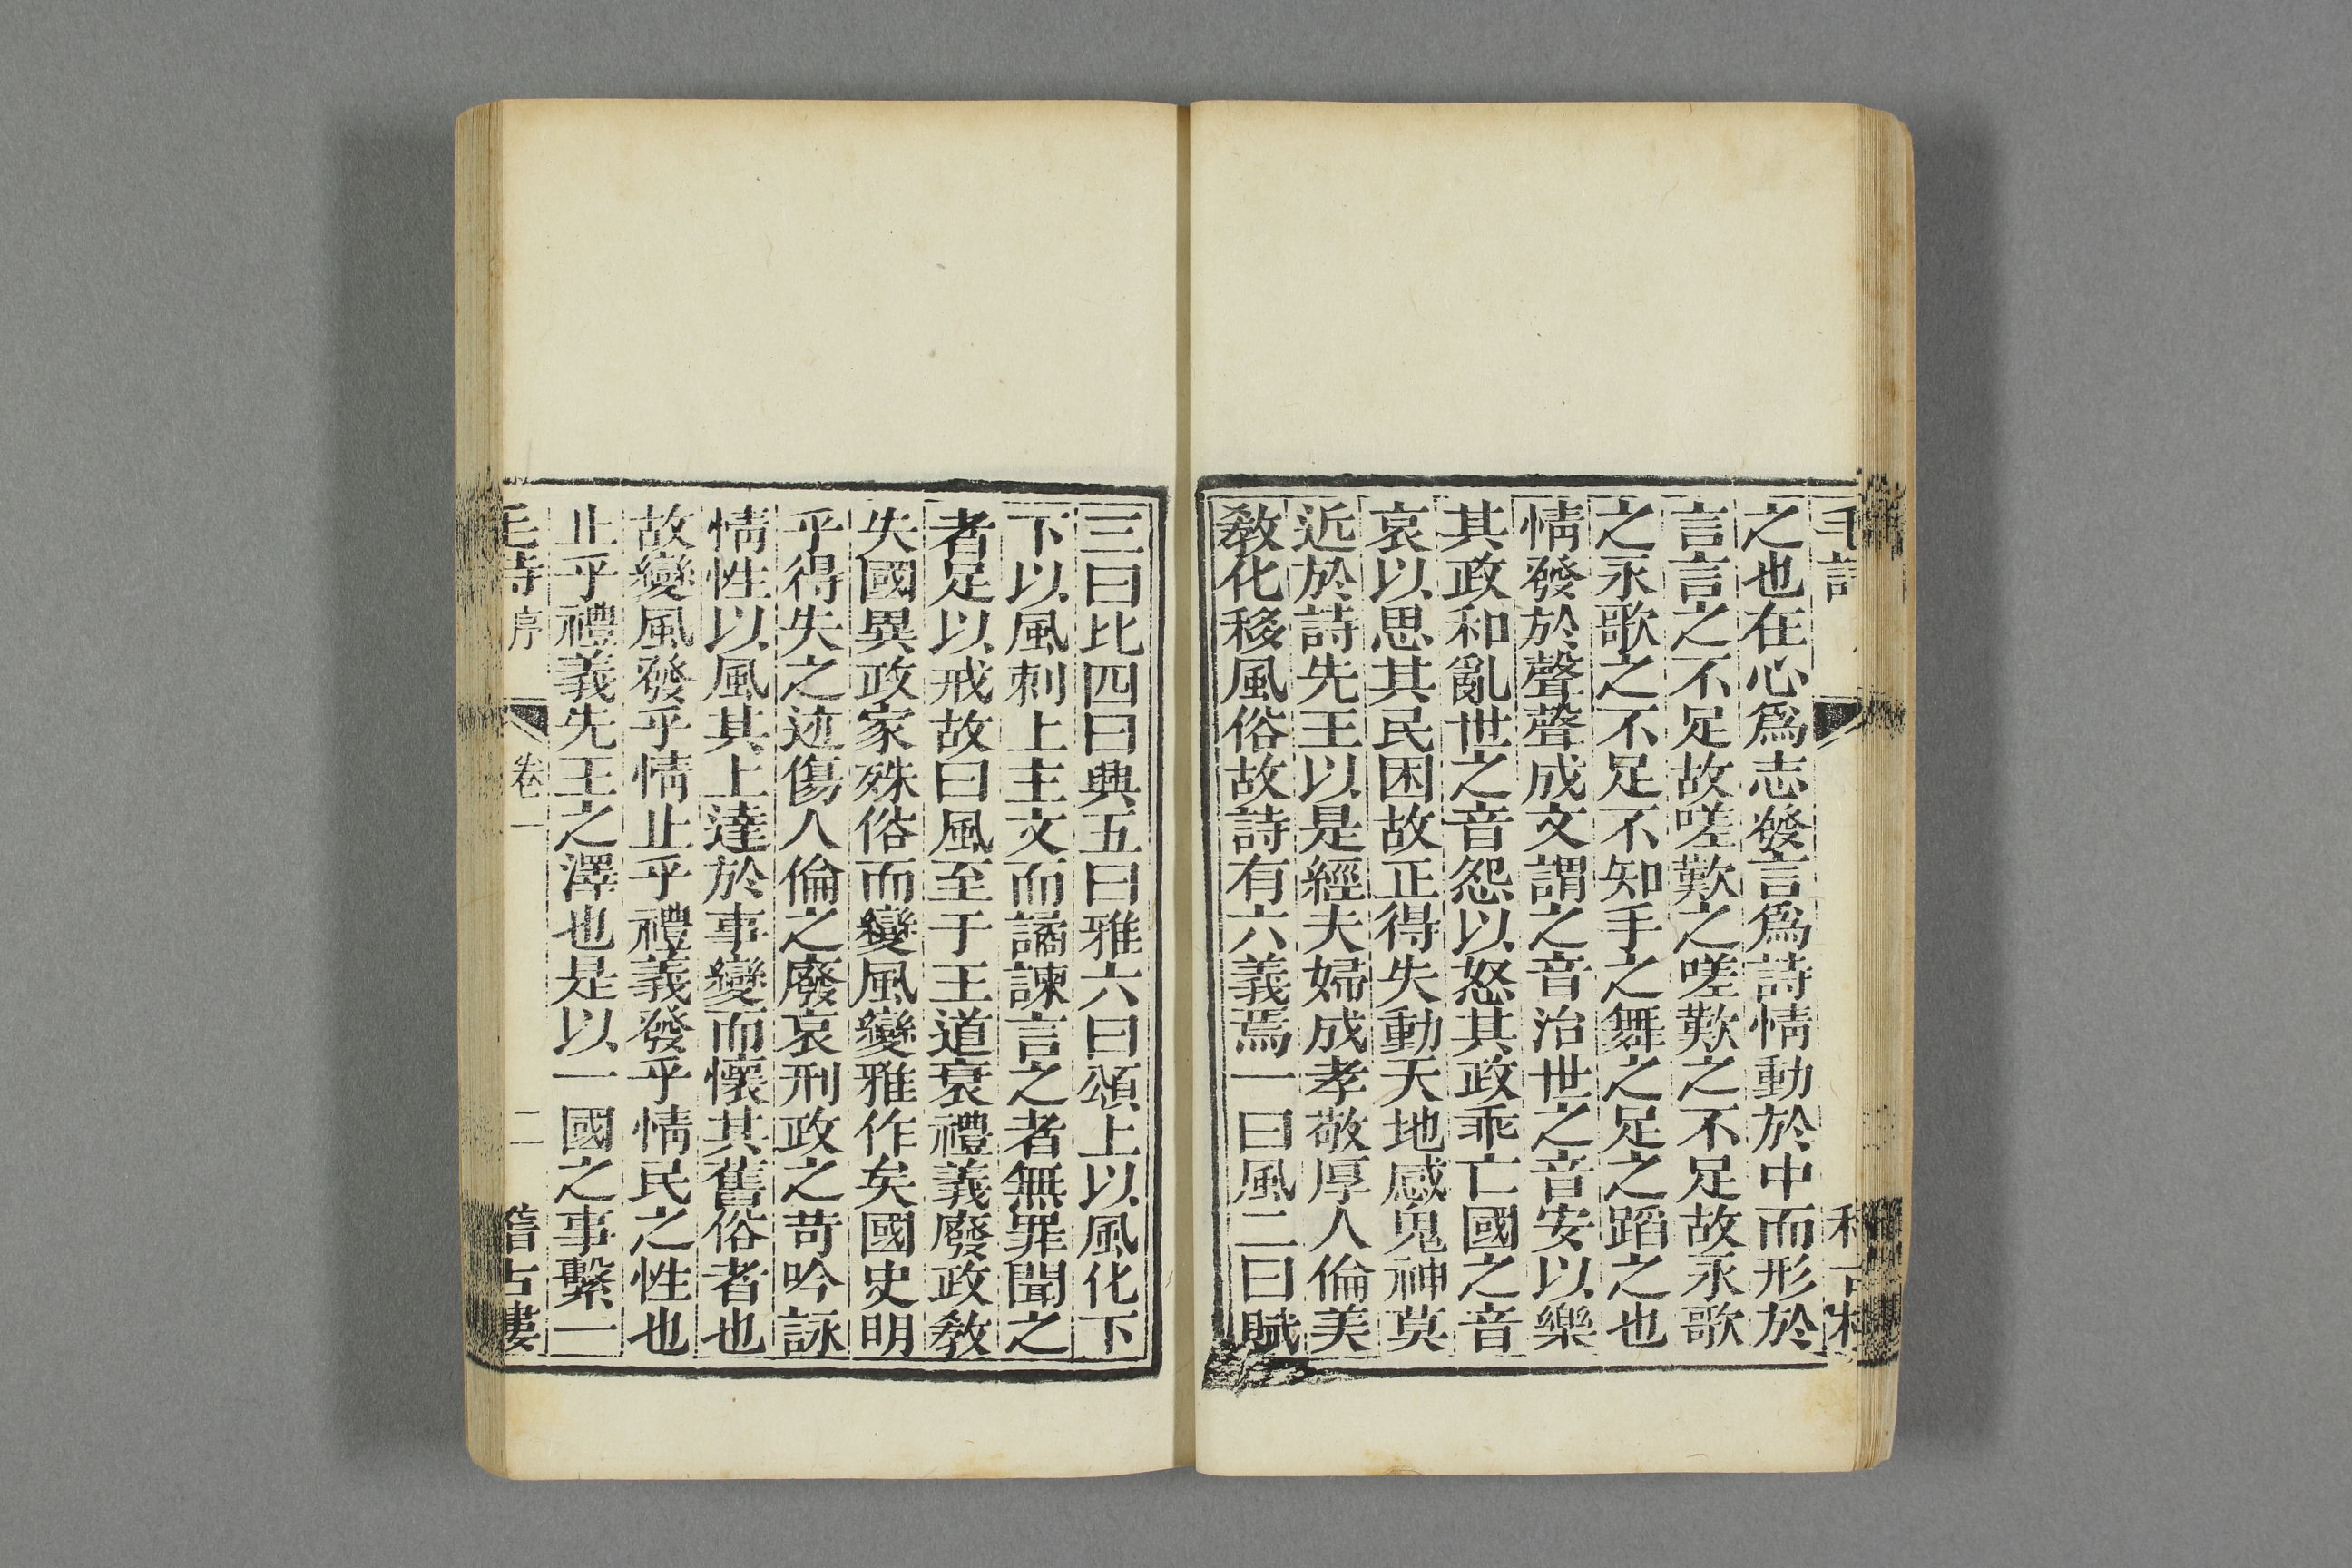 之也在心爲志發言爲詩情動於中而形於
言言之不足故嗟歎之嗟歎之不足故永歌
之永歌之不足不知手之舞之足之蹈之也
情發於聲聲成文謂之音治世之音安以樂
其政和亂世之音怨以怒其政乖亡國之音
哀以思其民困故正得失動天地感鬼神莫
近於詩先王以是經夫婦成孝敬厚人倫美
敎化移風俗故詩有六義焉一曰風二曰賦
三曰比四曰興五曰雅六曰頌上以風化下
下以風刺上主文而譎諫言之者無罪聞之
者足以戒故曰風至于王道衰禮義廢政敎
失國異政家殊俗而變風變雅作矣國史明
乎得失之迹傷人倫之廢哀刑政之苛吟詠
情性以風其上達於事變而懷其舊俗者也
故變風發乎情止乎禮義發乎情民之性也
止乎禮義先王之澤也是以一國之事繫一
毛詩序 卷一 二